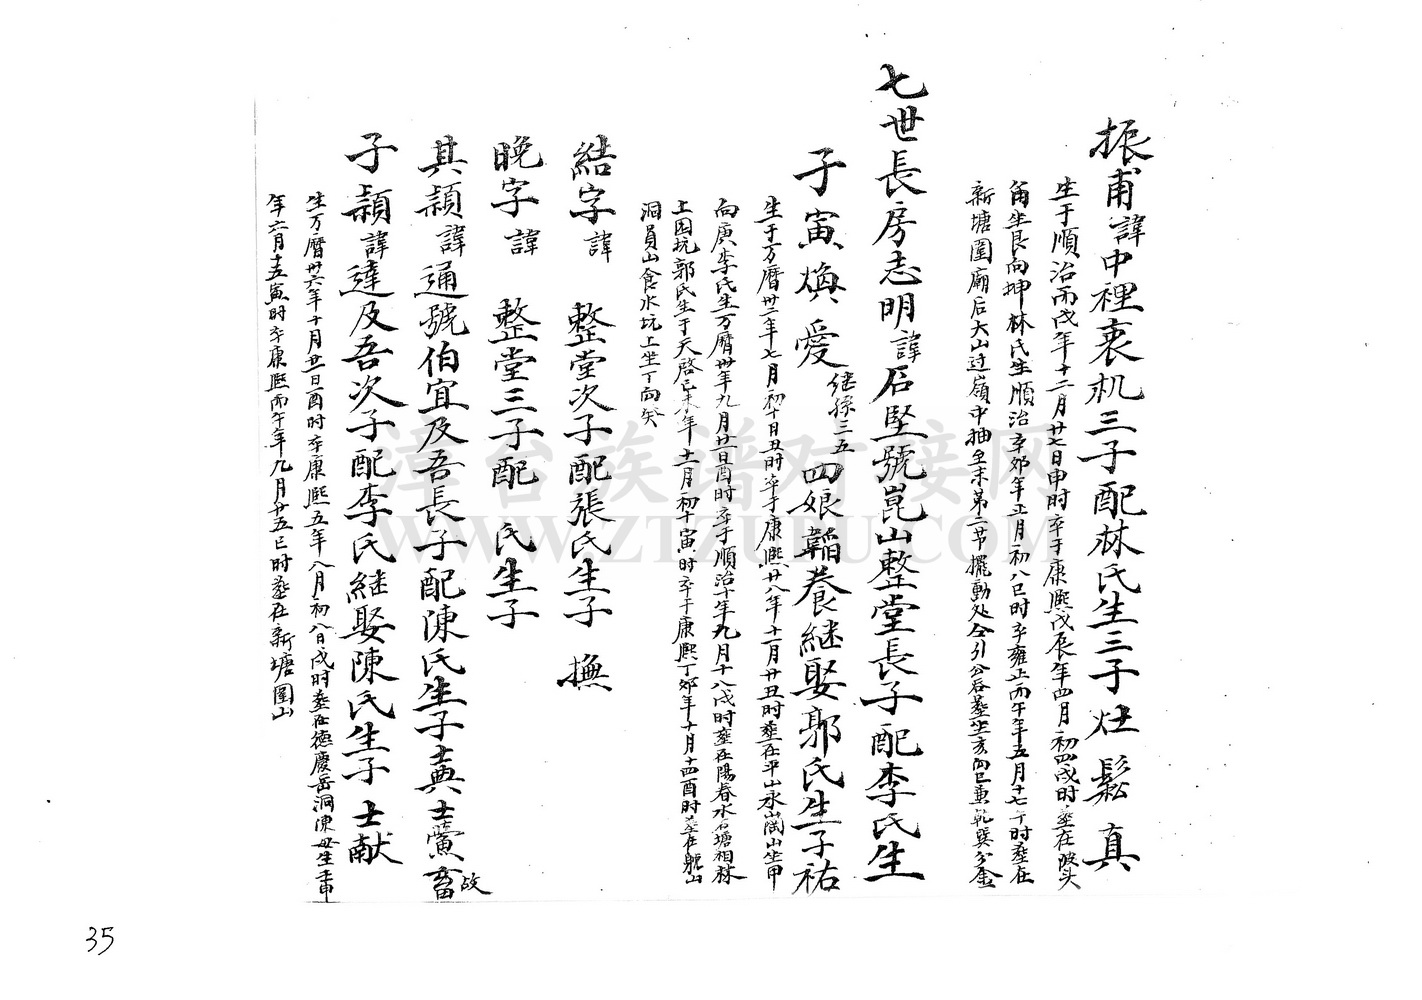 振甫諱中裡衷机三子配林氏生三子灶鬆真
生于順治丙戌年十二月廿七日申时卒于康熙戊辰年四月初四戌时塟在陂头
角坐艮向坤林氏生順治辛卯年正月初八巳时卒雍正丙午年五月十七午时塟在
新塘圍廟后大山过嶺中抽至末第二节擺動处仝引公唇塟坐亥向巳兼乾巽分金
七世長房志明諱后坚號崑山整堂長子配李氏生
子寅煥愛继孫三五四娘韜养継娶郭氏生子祐
生于万曆卅二年七月初十日丑时卒于康熙廿八年十一月廿丑时塟在平山永崗山坐甲
向庚李氏生万曆卅年九月廿日酉时卒于順治十年九月十八戌时塟在陽春水石塘相林
上因坑郭氏生于天啓己未年十一月初十寅时卒于康熙丁卯年十月十四酉时塟在貌山
洞員山食水坑上坐丁向癸
結字諱 整堂次子配張氏生子 撫
晩字諱 整堂三子配 氏生子
其頴諱通號伯宜及吾長子配陳氏生子士典士黨畜故
子頴諱達及吾次子配李氏継娶陳氏生子士献
生万曆卅六年十月廿一日酉时卒康熙五年八月初八日戌时塟在德慶岳洞陳母生壬申
年六月十五寅时卒康熙丙午年九月廿五巳时塟在新塘圍山
漳台族谱对接网
WWW.ZTZUPU.COM
35